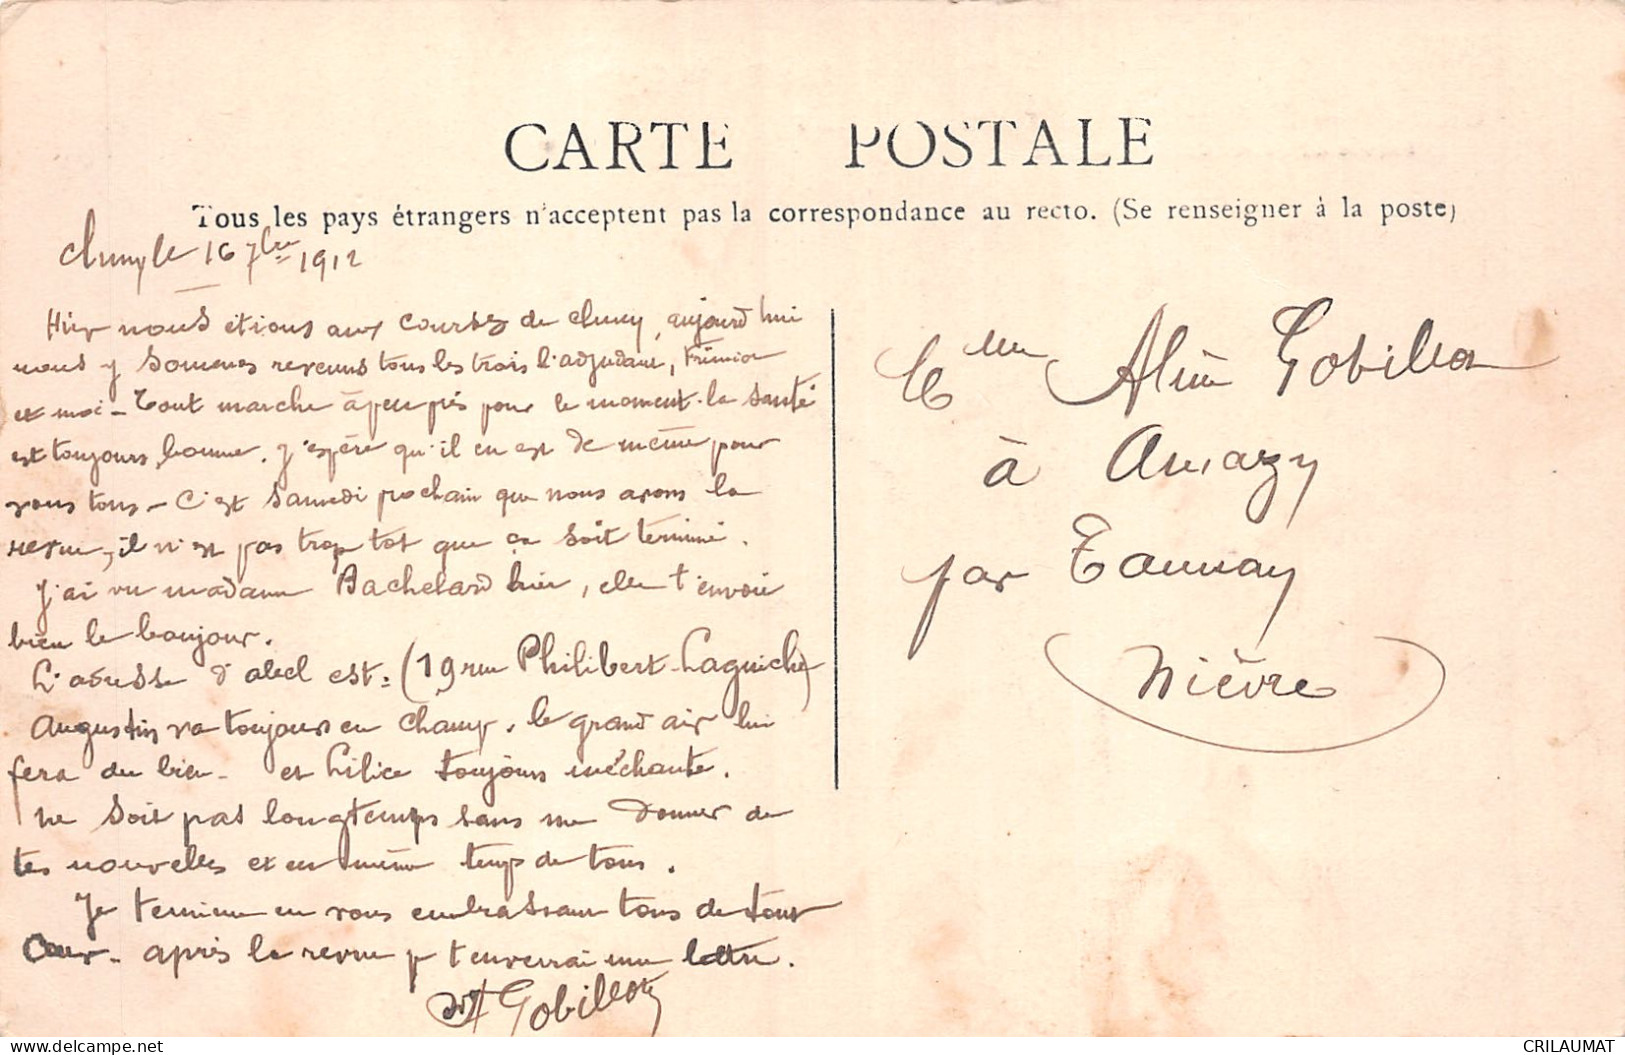 CARTE POSTALE
Tous les pays étrangers n'acceptent pas la correspondance au recto. (Se renseigner à la poste)
Cluny le 16 7bre 1912
Hier nous étions aux courses de Cluny, aujourd'hui
nous y sommes revenus tous les trois l'adjudant,
et moi - Tout marche à peu près pour le moment. la santé
est toujours bonne. j'espère qu'il en est de même pour
vous tous - C'est Samedi prochain que nous avons la
revue, il n'est pas trop tot que ça soit terminé.
J'ai vu madame Bachelard hier, elle t'envoie
bien le bonjour.
L'adresse d'abel est = (19 rue Philibert-Laguiche)
Augustin va toujours en champ. le grand air lui
fera du bien - et toujours méchante.
ne soit pas longtemps sans me donner de
tes nouvelles et en même temps de tous.
Je termine en vous embrassant tous de tout
Cœur - après la revue je t'enverrai une lettre.
Gobillot
Melle Gobillot
à Amazy
par Tannay
Nièvre
CRILAUMAT